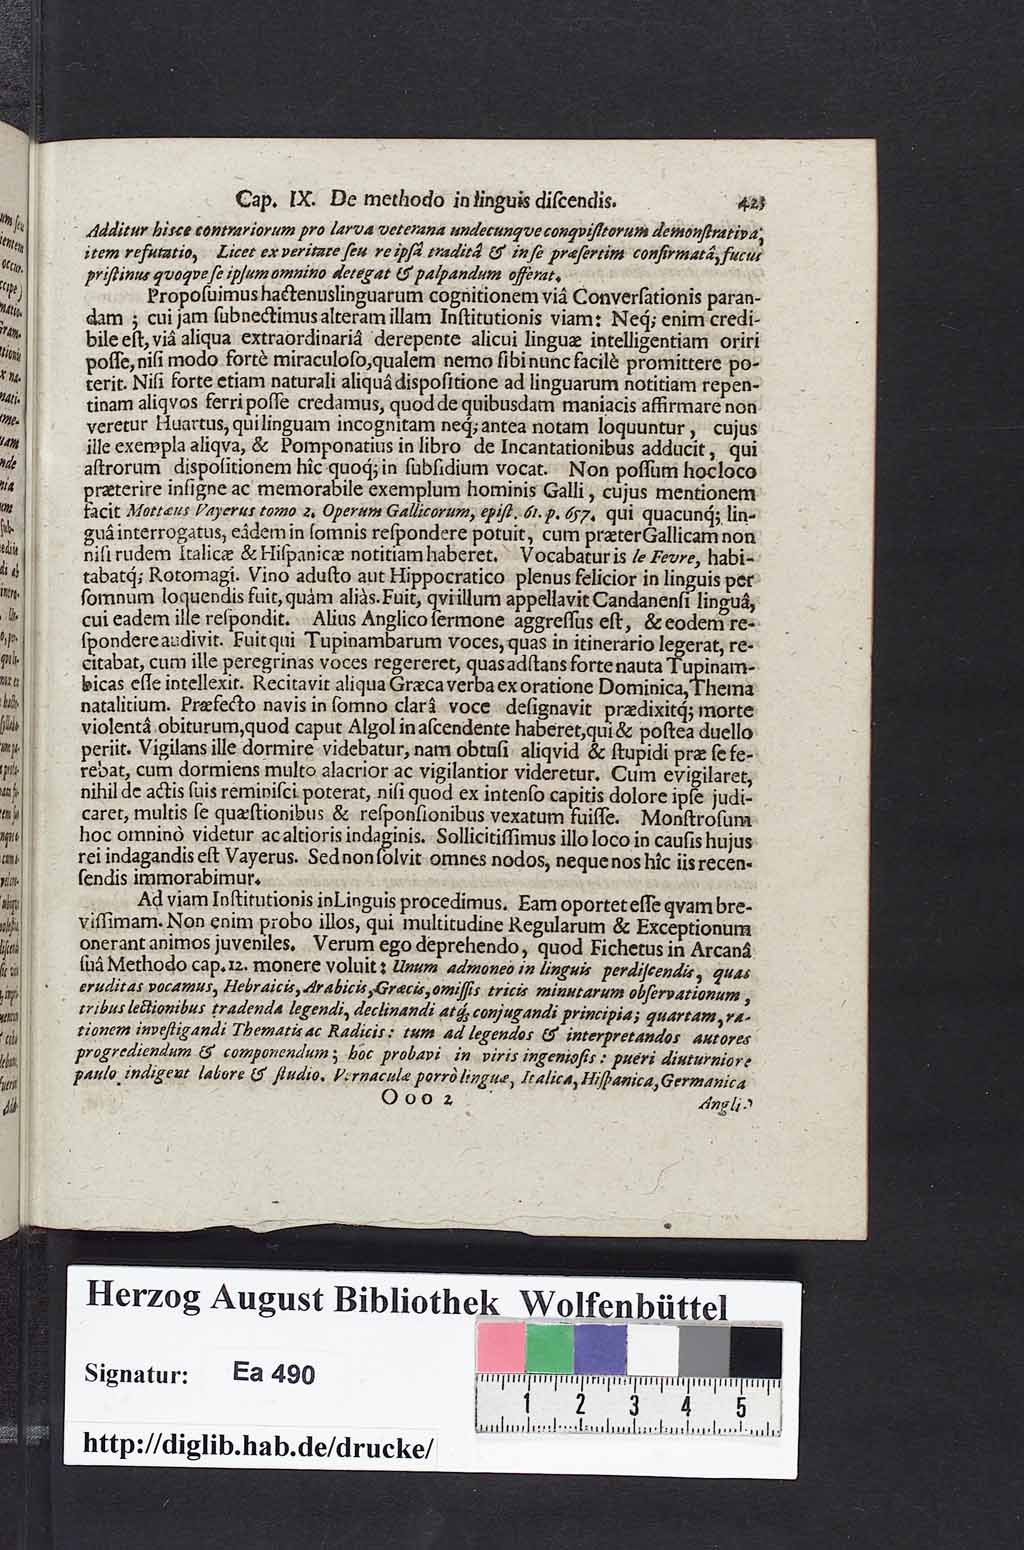 Cap. IX. De methodo in linguis diſcendis. 423
Additur hisce contrariorum pro larva veterana undecunqve conqviſitorum demonſtrativa,
item refutatio, Licet ex veritate ſeu re ipſâ traditâ & in ſe præſertim confirmatâ, fucus
priſtinus qvoqve ſe ipſum omnino detegat & palpandum offerat.
Propoſuimus hactenus linguarum cognitionem viâ Converſationis paran-
dam ; cui jam ſubnectimus alteram illam Inſtitutionis viam: Neq; enim credi-
bile eſt, viâ aliqua extraordinariâ derepente alicui linguæ intelligentiam oriri
poſſe, niſi modo fortè miraculoſo, qualem nemo ſibi nunc facilè promittere po-
terit. Niſi forte etiam naturali aliquâ diſpoſitione ad linguarum notitiam repen-
tinam aliqvos ferri poſſe credamus, quod de quibusdam maniacis affirmare non
veretur Huartus, qui linguam incognitam neq; antea notam loquuntur, cujus
ille exempla aliqva, & Pomponatius in libro de Incantationibus adducit, qui
aſtrorum diſpoſitionem hîc quoq; in ſubſidium vocat. Non poſſum hoc loco
præterire inſigne ac memorabile exemplum hominis Galli, cujus mentionem
facit Mottæus Vayerus tomo 2. Operum Gallicorum, epiſt. 61. p. 657. qui quacunq; lin-
guâ interrogatus, eâdem in ſomnis reſpondere potuit, cum præter Gallicam non
niſi rudem Italicæ & Hiſpanicæ notitiam haberet. Vocabatur is le Fevre, habi-
tabatq; Rotomagi. Vino aduſto aut Hippocratico plenus felicior in linguis per
ſomnum loquendis fuit, quàm aliàs. Fuit, qvi illum appellavit Candanenſi linguâ,
cui eadem ille reſpondit. Alius Anglico ſermone aggreſſus eſt, & eodem re-
ſpondere audivit. Fuit qui Tupinambarum voces, quas in itinerario legerat, re-
citabat, cum ille peregrinas voces regereret, quas adſtans forte nauta Tupinam-
bicas eſſe intellexit. Recitavit aliqua Græca verba ex oratione Dominica, Thema
natalitium. Præfecto navis in ſomno clarâ voce deſignavit prædixitq; morte
violentâ obiturum, quod caput Algol in aſcendente haberet, qui & poſtea duello
periit. Vigilans ille dormire videbatur, nam obtuſi aliqvid & ſtupidi præ ſe fe-
rebat, cum dormiens multo alacrior ac vigilantior videretur. Cum evigilaret,
nihil de actis ſuis reminiſci poterat, niſi quod ex intenſo capitis dolore ipſe judi-
caret, multis ſe quæſtionibus & reſponſionibus vexatum fuiſſe. Monſtroſum
hoc omninò videtur ac altioris indaginis. Sollicitiſſimus illo loco in cauſis hujus
rei indagandis eſt Vayerus. Sed non ſolvit omnes nodos, neque nos hîc iis recen-
ſendis immorabimur.
Ad viam Inſtitutionis in Linguis procedimus. Eam oportet eſſe qvam bre-
viſſimam. Non enim probo illos, qui multitudine Regularum & Exceptionum
onerant animos juveniles. Verum ego deprehendo, quod Fichetus in Arcanâ
ſuâ Methodo cap. 12. monere voluit: Unum admoneo in linguis perdiſcendis, quas
eruditas vocamus, Hebraicis, Arabicis, Græcis, omiſſis tricis minutarum obſervationum,
tribus lectionibus tradenda legendi, declinandi atq; conjugandi principia; quartam, ra-
tionem inveſtigandi Thematis ac Radicis: tum ad legendos & interpretandos autores
progrediendum & componendum; hoc probavi in viris ingenioſis: pueri diuturniore
paulo indigent labore & ſtudio. Vernaculæ porrò linguæ, Italica, Hiſpanica, Germanica
Ooo 2 Angli-
Herzog August Bibliothek Wolfenbüttel
Signatur: Ea 490
http://diglib.hab.de/drucke/
1 2 3 4 5